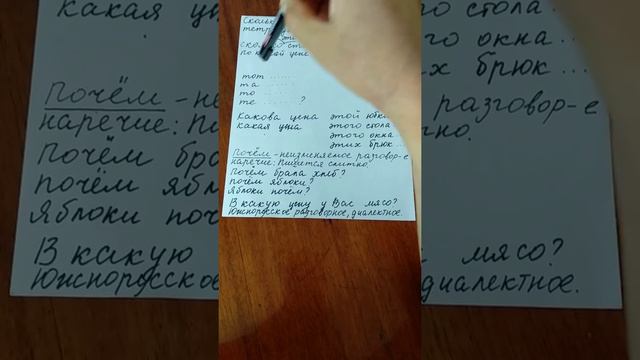 Сколь
тетр
сколько ст
по какой цене
тот .......
та .......
то .......
те ....... ?
Какова цена этой юбки
какая цена этого стола...
этого окна...
этих брюк...
Почём - неизменяемое разговор-е
наречие: Пишется слитно.
Почём брала хлеб?
почём яблоки?
Яблоки почём?
В какую цену у Вас мясо?
Южнорусское разговорное, диалектное.